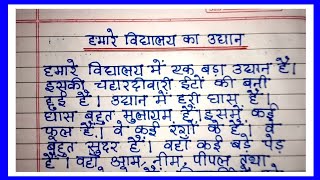 हमारे विद्यालय का उद्यान
हमारे विद्यालय में एक बड़ा उद्यान है।
इसकी चहारदीवारी ईंटों की बनी
हुई है। उद्यान में हरी घास है।
घास बहुत मुलायम है। इसमें कई
फूल हैं। वे कई रंगों के हैं। वे
बहुत सुंदर हैं। वहाँ कई बड़े पेड़
हैं। वहाँ आम, नीम, पीपल तथा